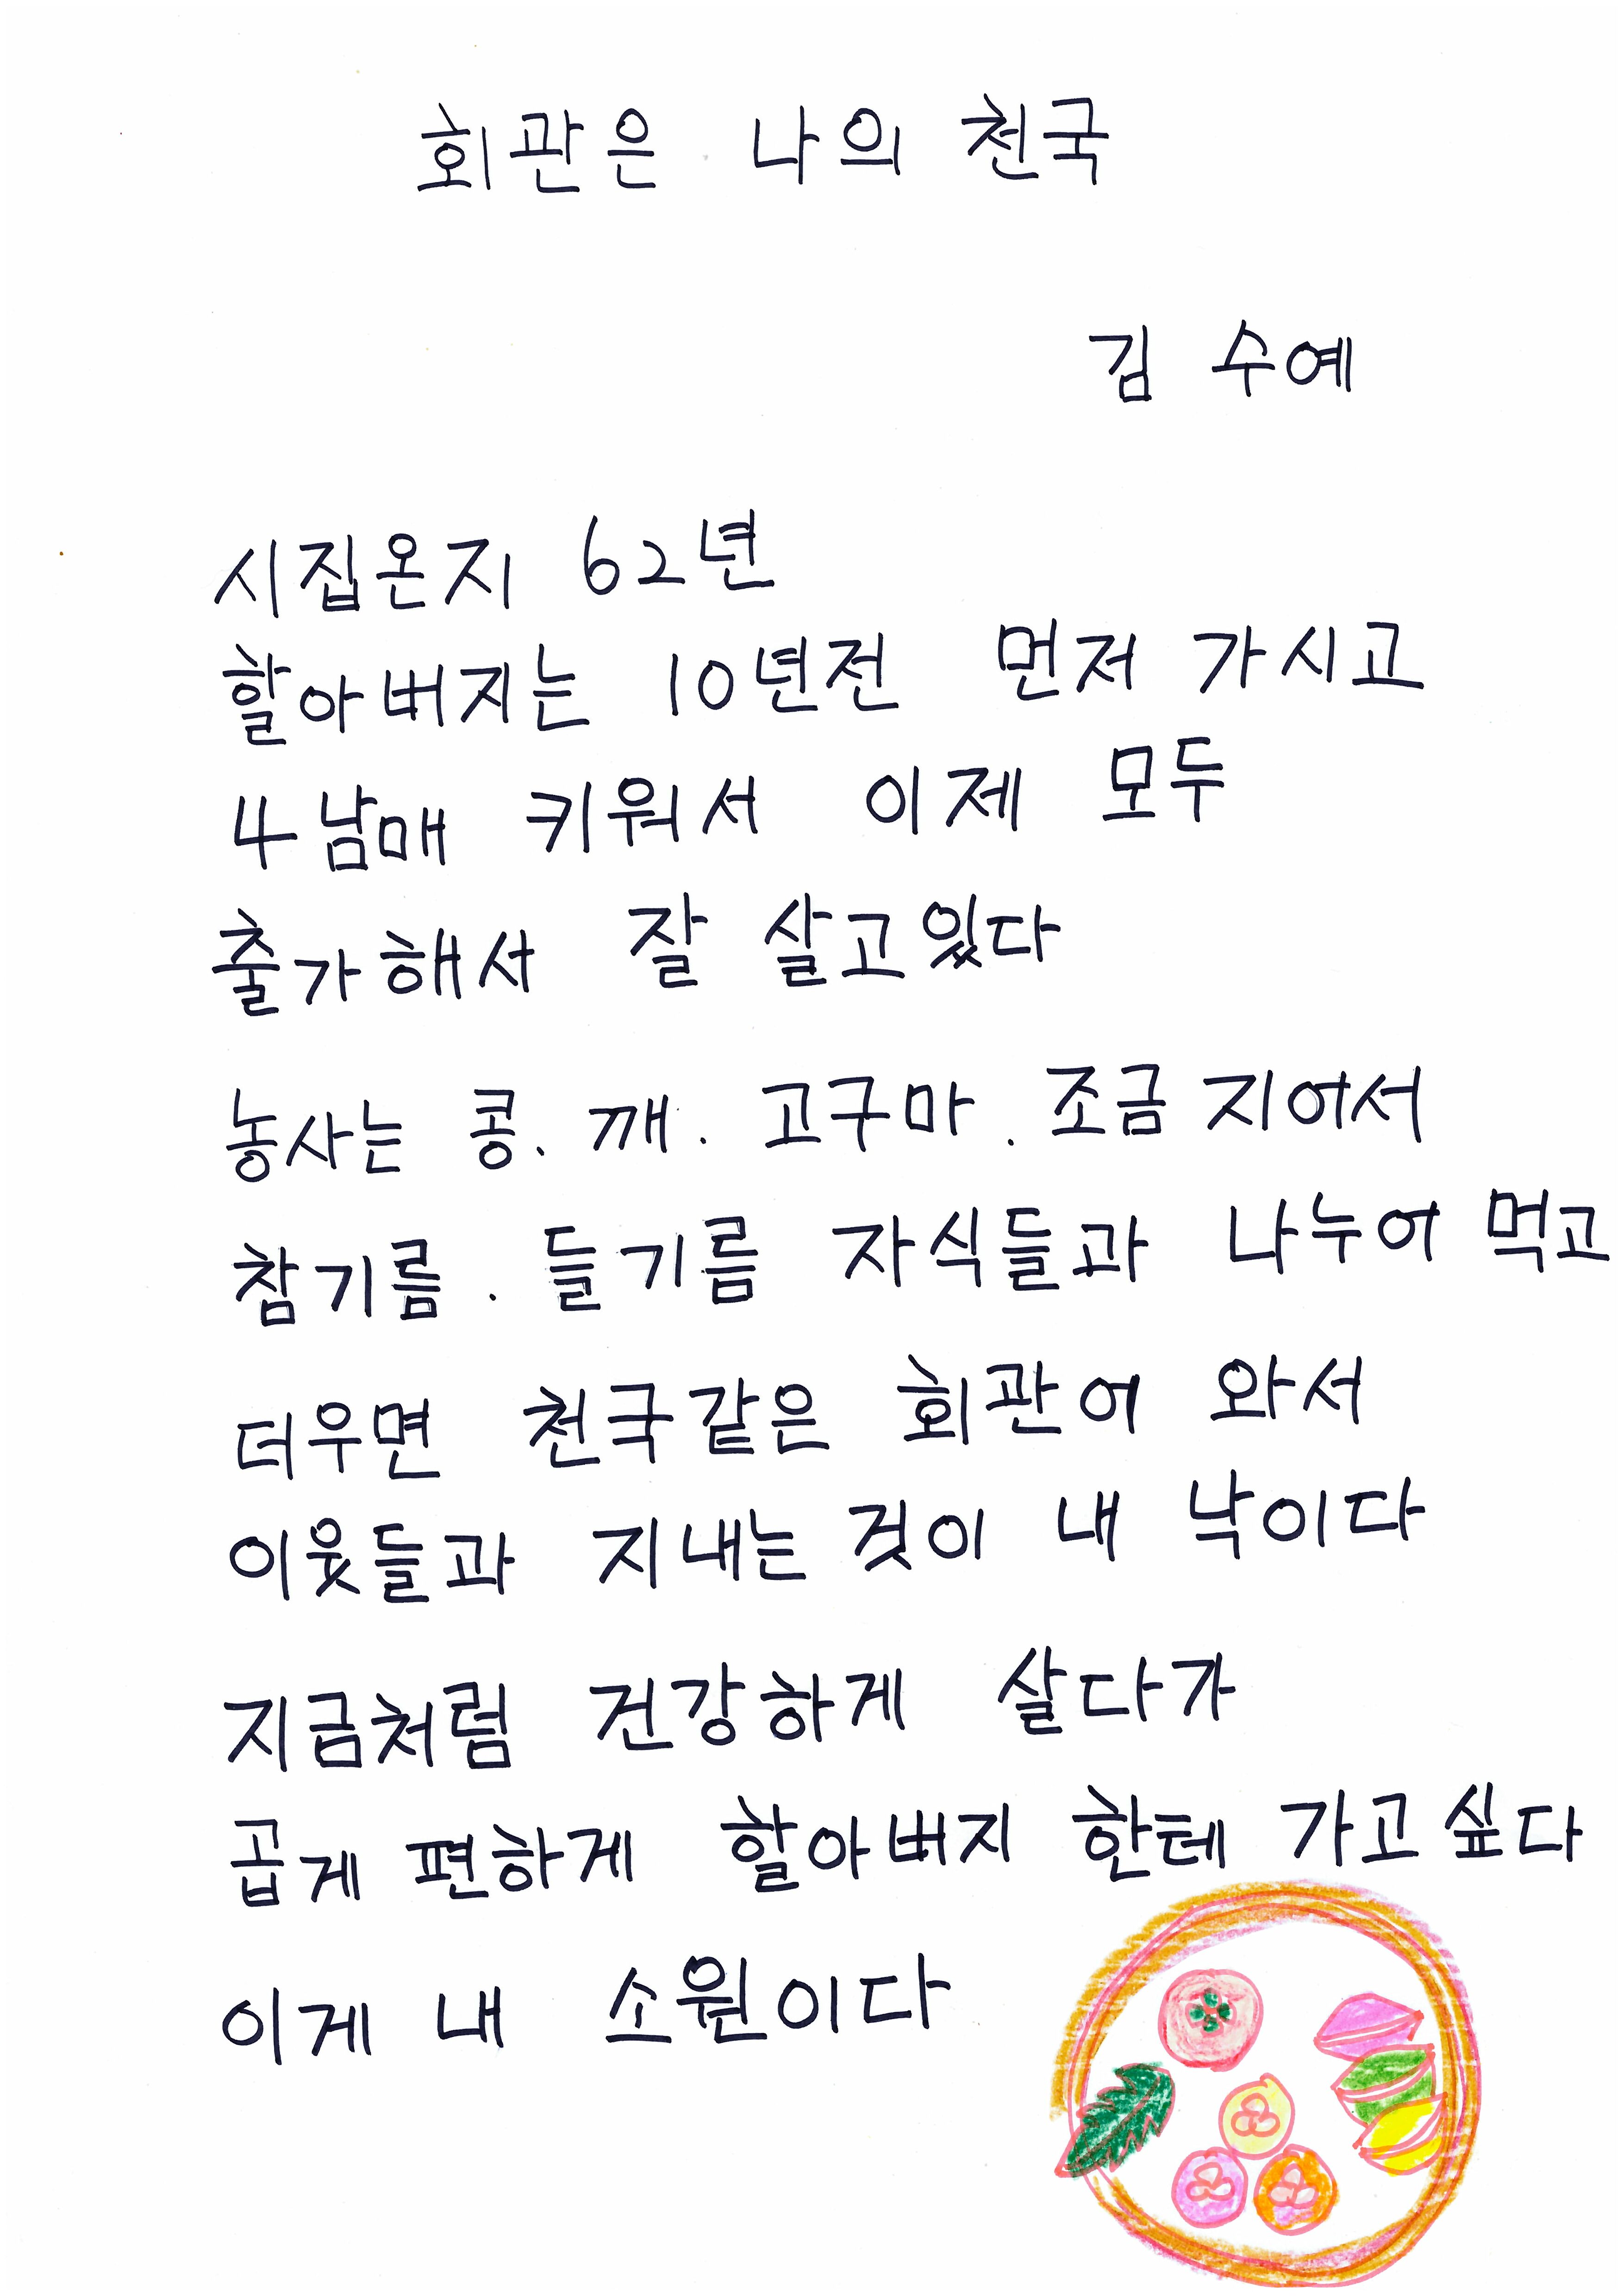 회관은 나의 천국
김 수예
시집온지 62년
할아버지는 10년전 먼저 가시고
4남매 키워서 이제 모두
출가해서 잘 살고있다
농사는 콩. 깨. 고구마. 조금 지어서
참기름. 들기름 자식들과 나누어 먹고
더우면 천국같은 회관어 와서
이웃들과 지내는 것이 내 낙이다
지금처럼 건강하게 살다가
곱게 편하게 할아버지 한테 가고싶다
이게 내 소원이다